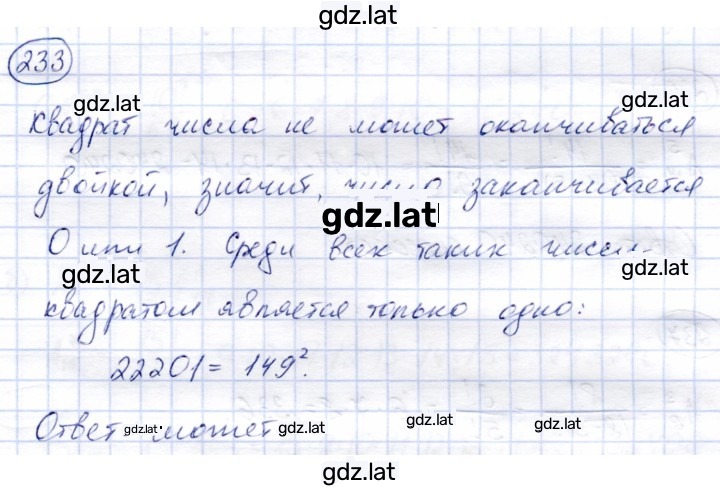 gdz.lat
233
gdz.lat gdz.lat
квадрат числа не может оканчиваться
двойкой, значит, заканчивается
gdz.lat
0 или 1. Среди всех таких чисел
gdz.lat gdz.lat
квадратом является только одно:
22201 = 149².
gdz.lat gdz.lat
Ответ gdz.lat может gdz.lat
gdz.lat